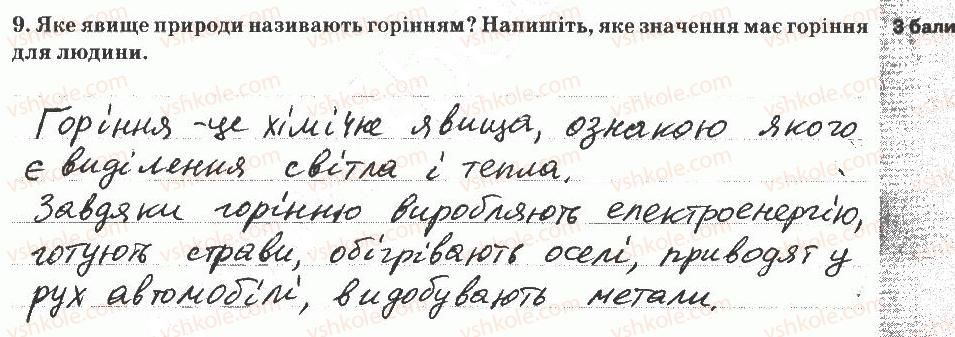 9. Яке явище природи називають горінням? Напишіть, яке значення має горіння
для людини.
3 бали
Горіння -це хімічне явища, ознакою якого
є виділення світла і тепла.
Завдяки горінню виробляють електроенергію,
готують страви, обігрівають оселі, приводят у
рух автомобілі, видобувають метали.